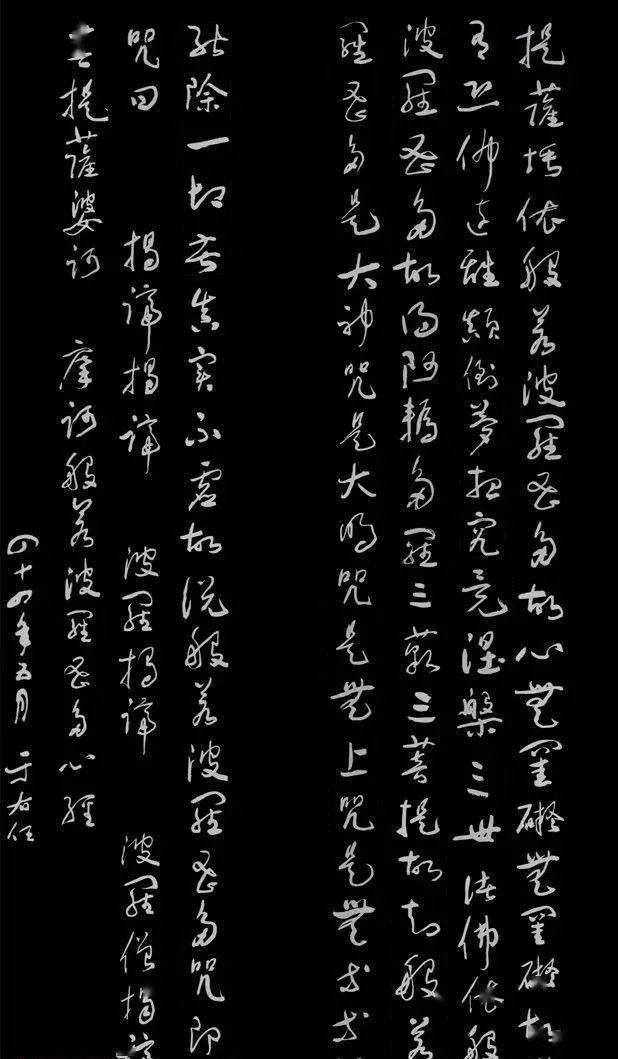 提薩埵依般若波羅蜜多故心無罣礙無罣礙故
有恐怖遠離顛倒夢想究竟涅槃三世諸佛依般
波羅蜜多故得阿耨多羅三藐三菩提故知般若
羅蜜多是大神咒是大明咒是無上咒是無等等
能除一切苦真實不虛故說般若波羅蜜多咒即
咒曰 揭諦揭諦 波羅揭諦 波羅僧揭諦
菩提薩婆訶 摩訶般若波羅蜜多心經
四十四年五月 于右任